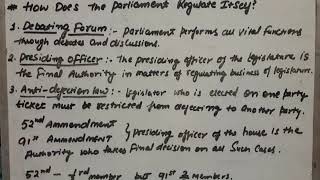 * How Does the Parliament Regulate Itself?
1. Debating Forum :- Parliament performs all vital functions
through debates and discussions.
2. Presiding Officer :- The presiding officer of the legislature is
the Final Authority in matters of regulating business of legislature.
3. Anti-defection law :- Legislator who is elected on one party
ticket must be restricted from defecting to another party.
52nd Ammendment
91st AMMENDMENT } Presiding officer of the house is the
Authority who takes final decision on all such cases.
52nd - 1/3rd member but 91st members.